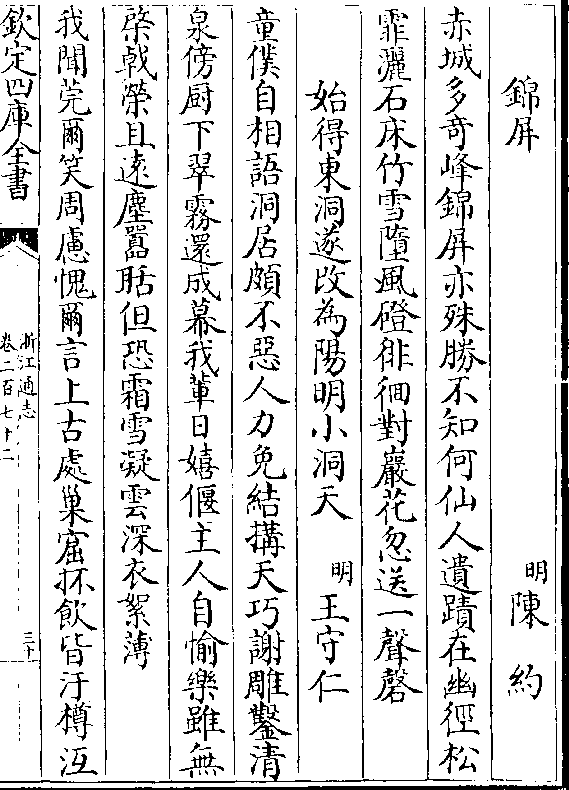 錦屏
明 陳約
赤城多奇峰錦屏亦殊勝不知何仙人遺蹟在幽徑松
霏灑石床竹雪墮風磴徘徊對巖花忽送一聲磬
始得東洞遂改為陽明小洞天
明 王守仁
童僕自相語洞居頗不惡人力免結搆天巧謝雕鑿清
泉傍厨下翠霧還成幕我輩日嬉偃主人自愉樂雖無
棨戟榮且遠塵囂聒但恐霜雪凝雲深衣絮薄
我聞莞爾笑周慮愧爾言上古處巢窟抔飲皆汙樽沍
欽定四庫全書
浙江通志
卷二百七十二
三十